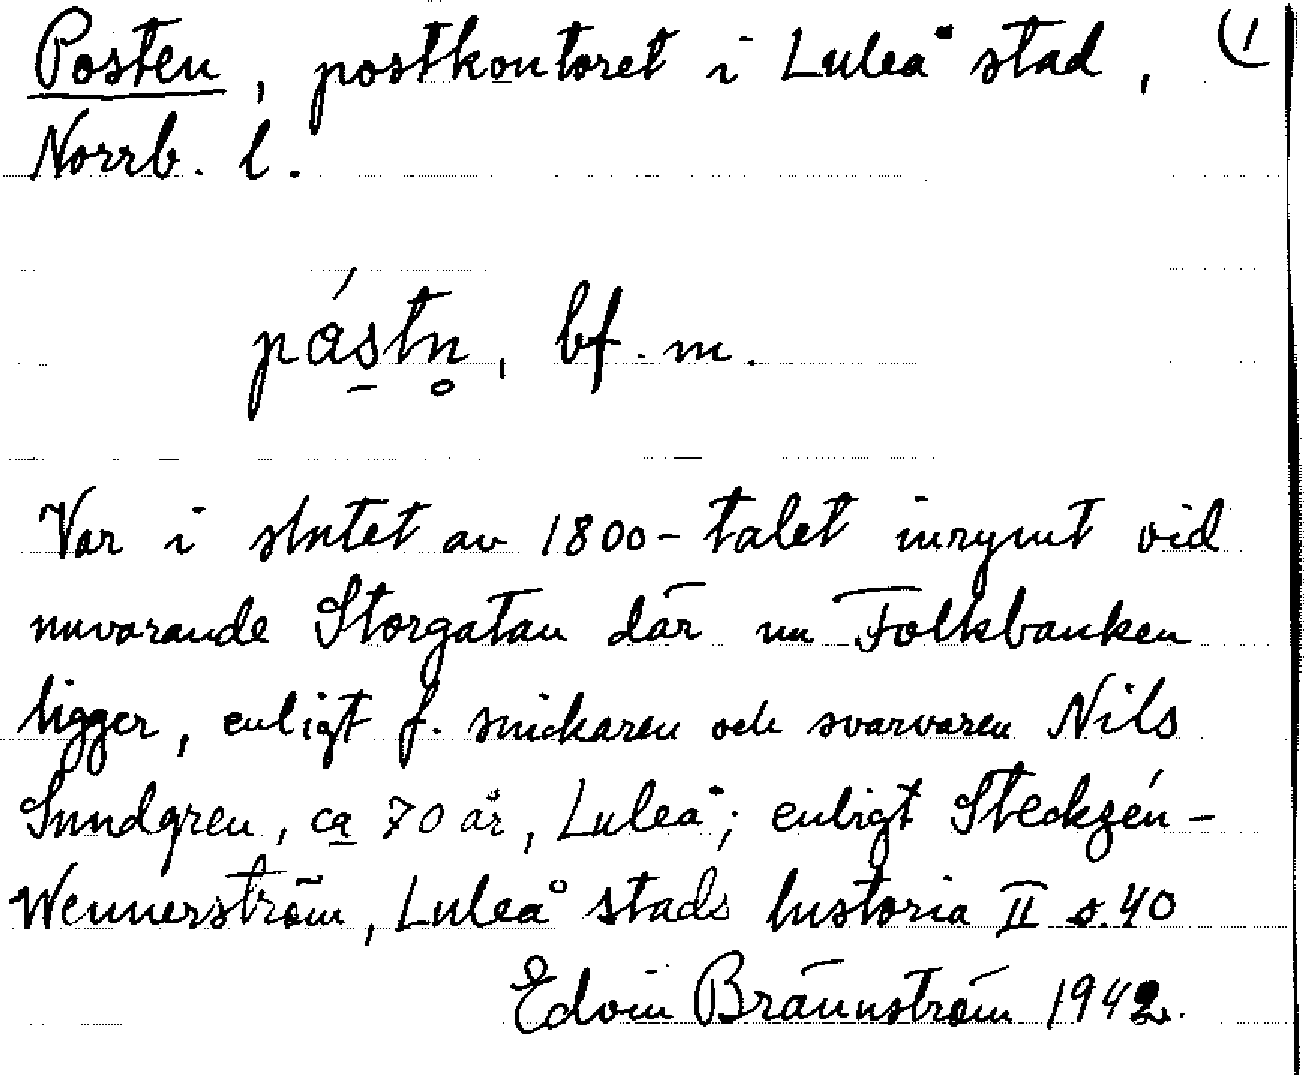 Posten, postkontoret i Luleå stad, (1
Norrb. l.
pá̱stn̥, bf. m.
Var i slutet av 1800-talet inrymt vid
nuvarande Storgatan där nu Folkbanken
ligger, enligt f. snickaren och svarvaren Nils
Sundgren, ca 70 år, Luleå; enligt Steckzén-
Wennerström, Luleå stads historia II s. 40
Edvin Brännström 1942.